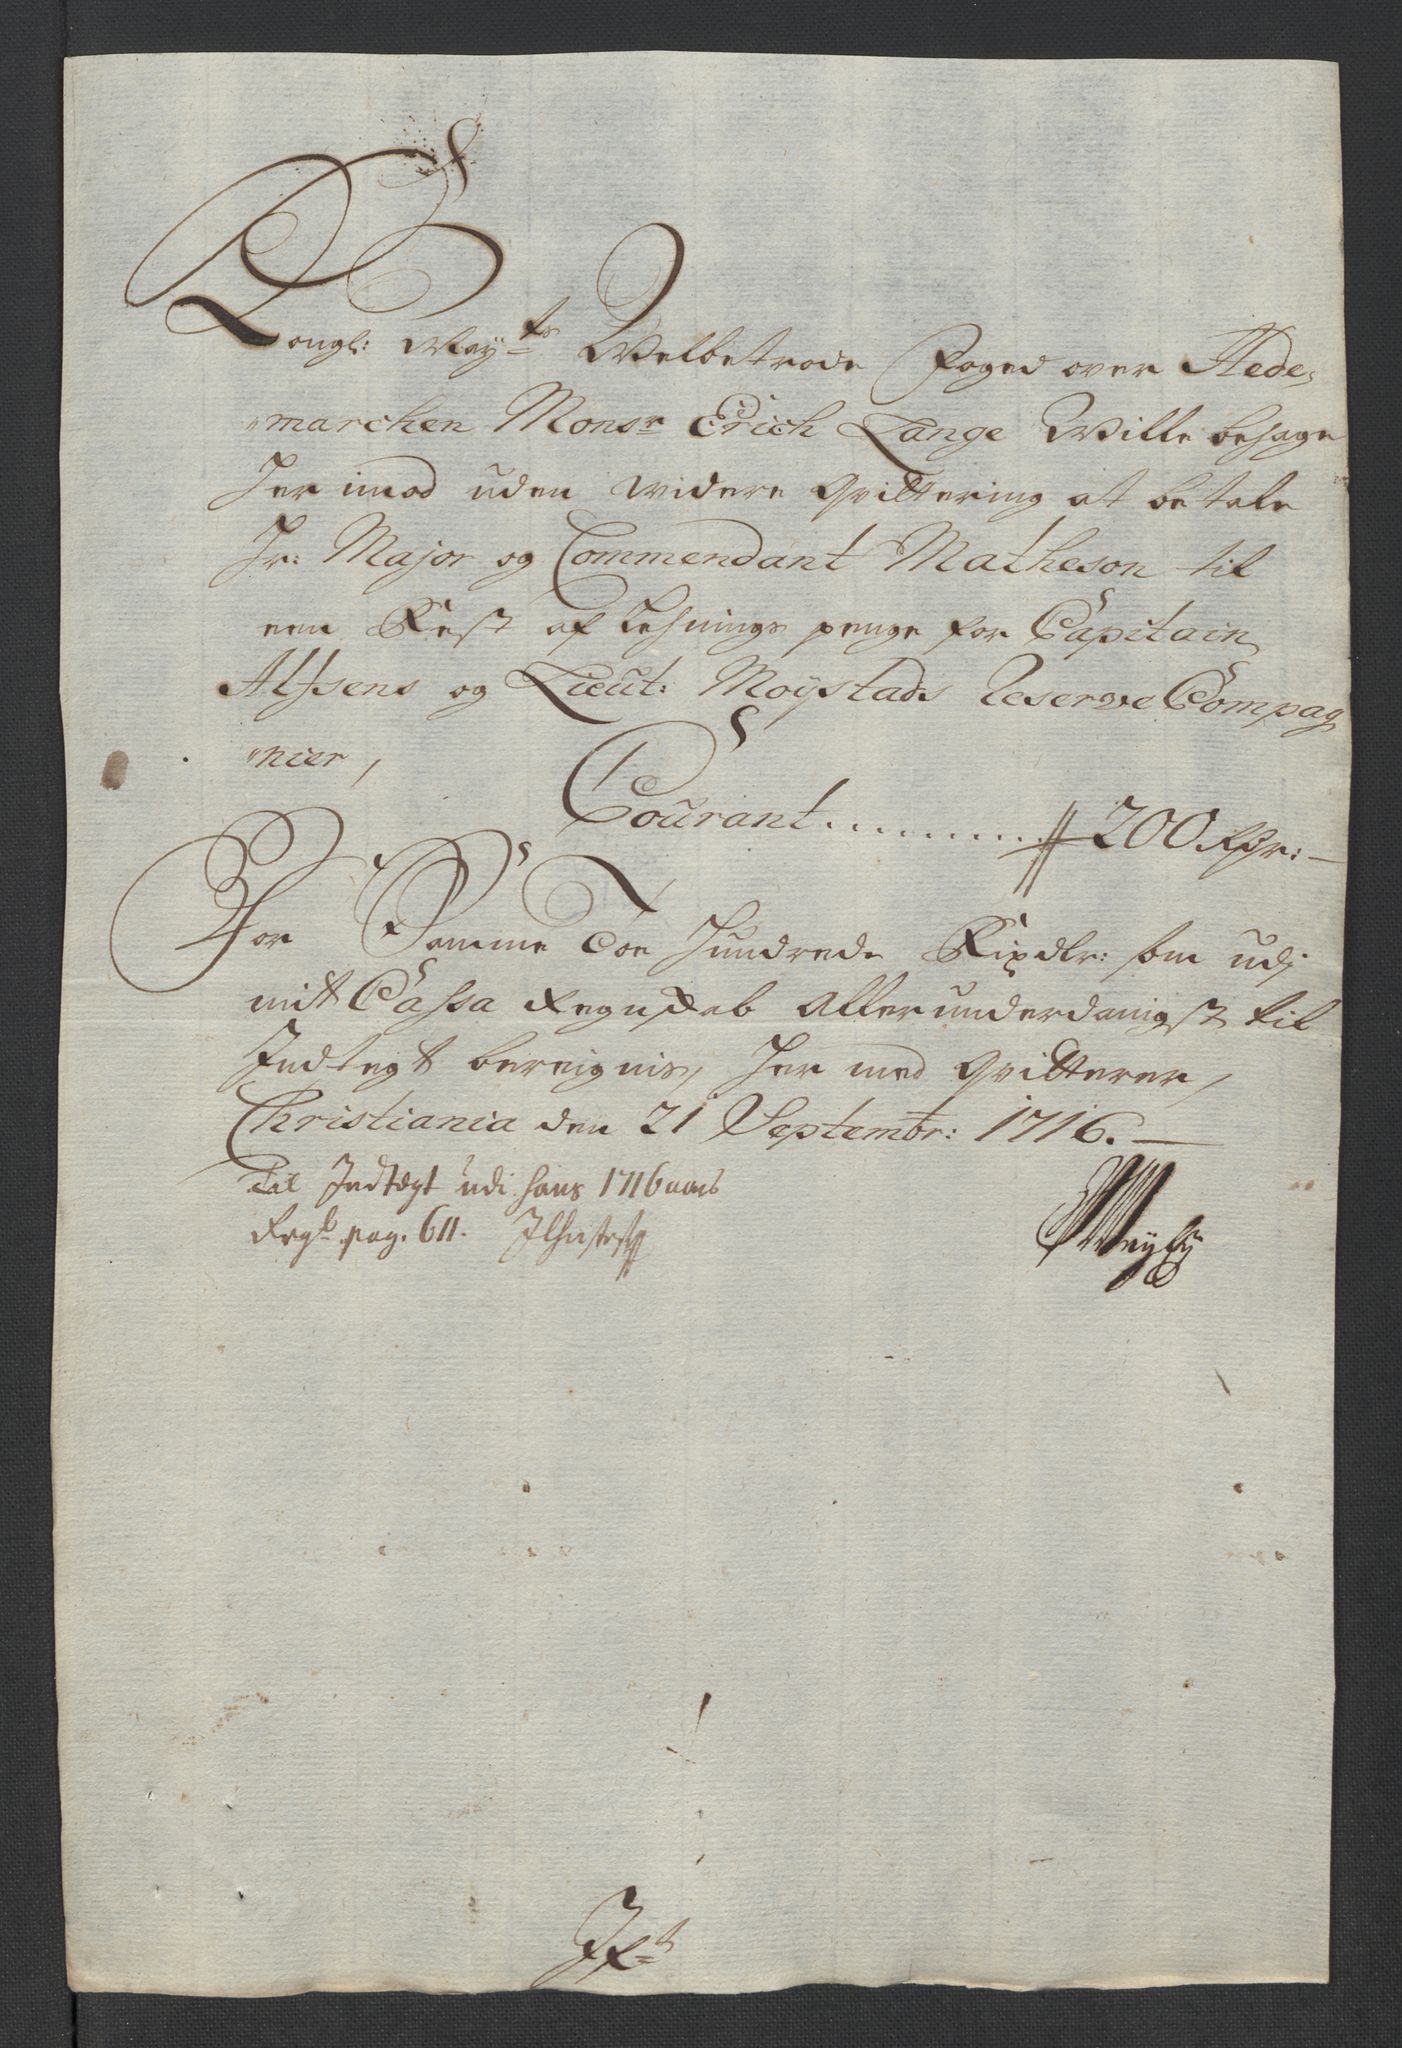 Kongl: May:ts Welbetrode Foged over Hede,
marchen Monsr Erich Lange Wille behage
her imod uden widere qvittering at betale
Hr: Major og Commendant Matheson til
een Rest af Lehnings penge for Capitain
Alssens og Lieut: Moÿstads Reserve Compag
nier,
Courant ........... 200 Rdr: —
For Samme Toe Hundrede Rixdlr: som udj
mit Cassa Regnskab allerunderdanigst til
Indtegt bereignis, her med qvitterer,
Christiania den 21 Septembr: 1716. —
Til Indtægt udi hans 1716 aars
Regsk. pag. 611.